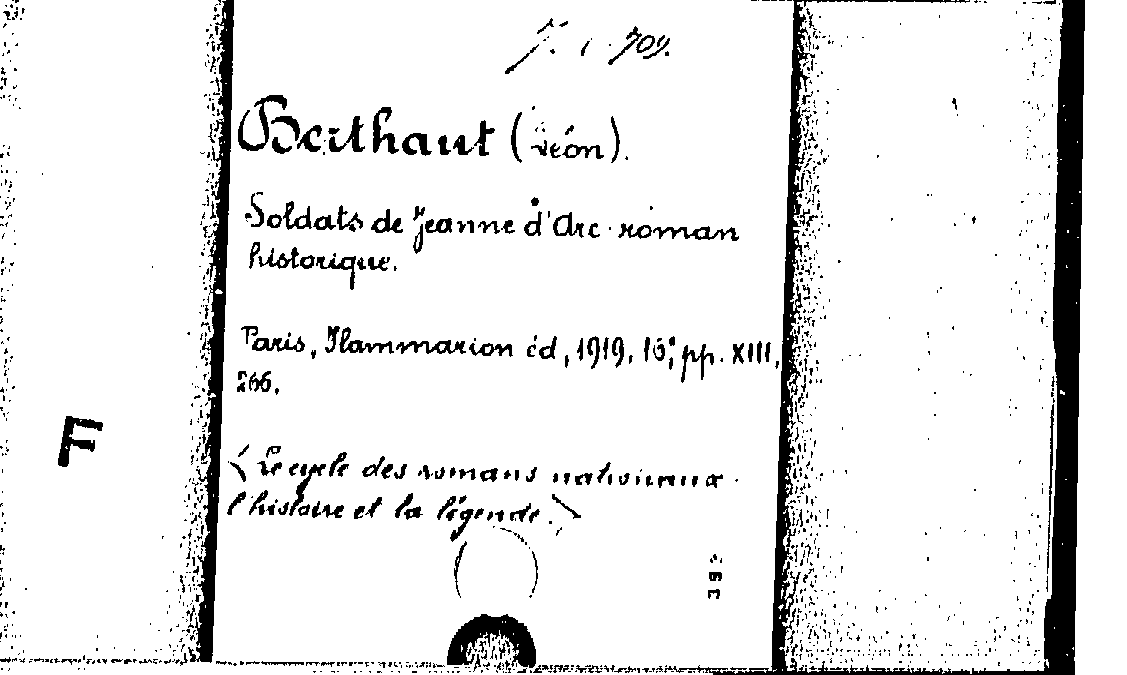 709.
Berthaut (Léon).
Soldats de Jeanne d'Arc. roman
historique.
Paris, Flammarion éd, 1919, 16°, pp. XIII,
266.
F
(Le cycle des romans nationaux.
l'histoire et la légende.)